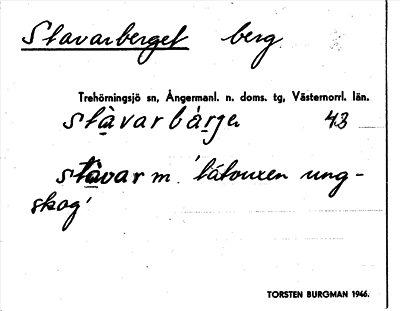 Stavarberget berg
Trehörningsjö sn, Ångermanl. n. doms. tg, Västernorrl. län.
stàvarbárje 43
stàvar m. 'tätvuxen ung-
skog'
TORSTEN BURGMAN 1946.